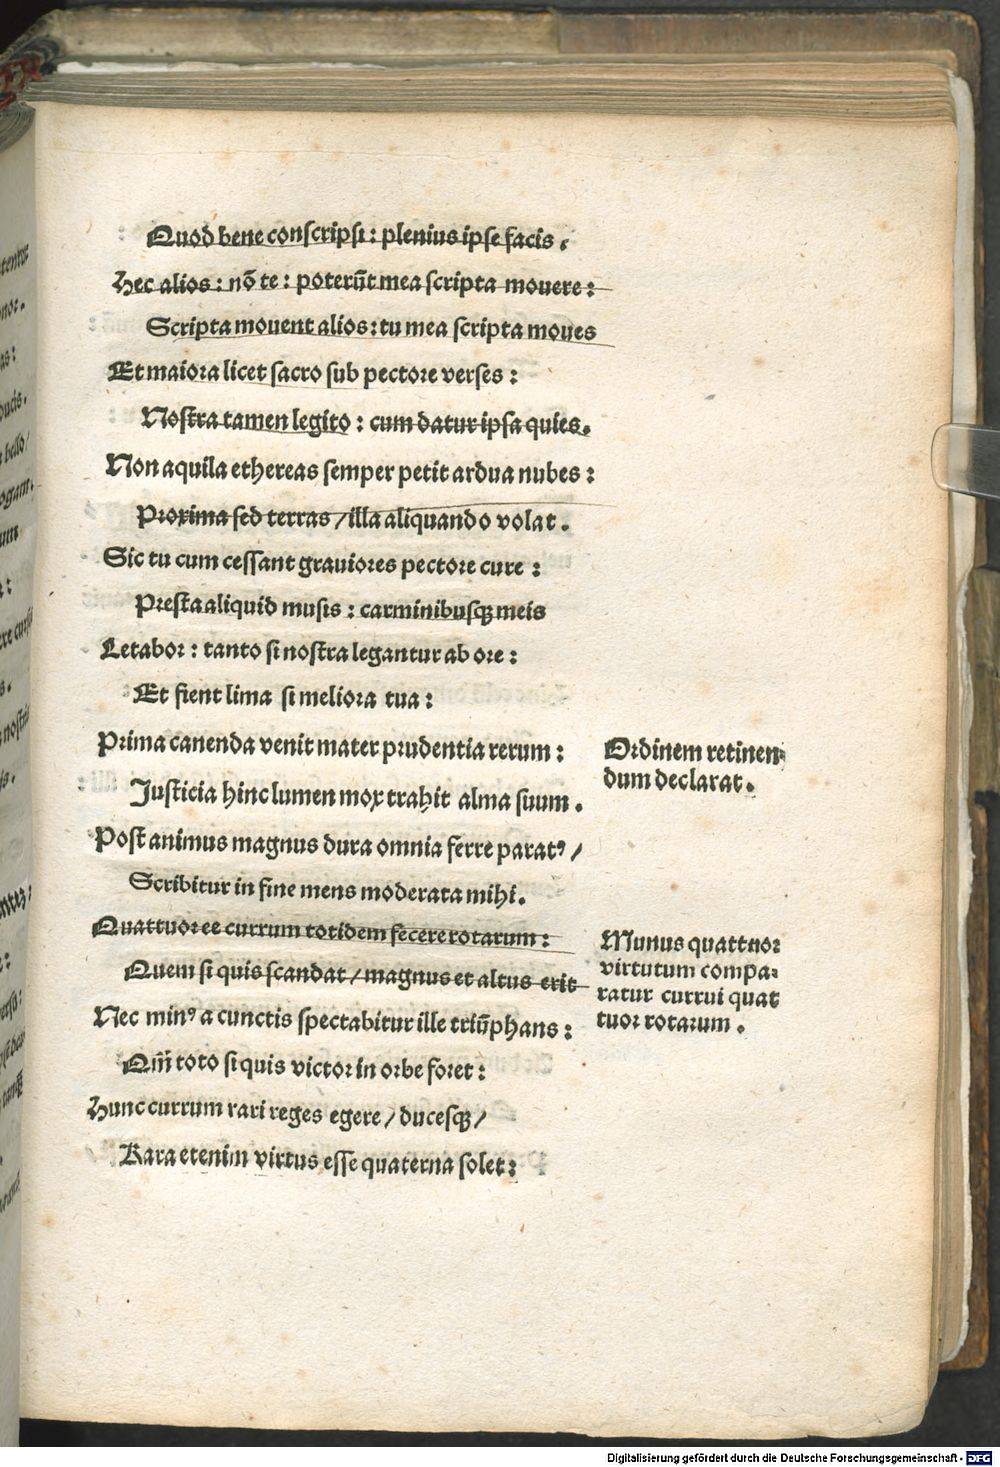 Quod bene conscripsi : plenius ipse facis .
Hec alios : nõ te : poterũt mea scripta mouere :
Scripta mouent alios : tu mea scripta moues
Et maiora licet sacro sub pectore verses :
Nostra tamen legito : cum datur ipsa quies .
Non aquila ethereas semper petit ardua nubes :
Proxima sed terras / illa aliquando volat .
Sic tu cum cessant grauiores pectore cure :
Presta aliquid musis : carminibusqꝫ meis
Letabor : tanto si nostra legantur ab ore :
Et fient lima si meliora tua :
Prima canenda venit mater prudentia rerum :
Justicia hinc lumen mox trahit alma suum .
Post animus magnus dura omnia ferre paratꝰ /
Scribitur in fine mens moderata mihi .
Quattuor ee currum totidem fecere rotarum :
Quem si quis scandat / magnus et altus erit
Nec minꝰ a cunctis spectabitur ille triũphans :
Qm̃ toto si quis victor in orbe foret :
Hunc currum rari reges egere / ducesqꝫ /
Rara etenim virtus esse quaterna solet :
Ordinem retinen-
dum declarat .
Munus quattuor
virtutum compa-
ratur currui quat
tuor rotarum .
Digitalisierung gefördert durch die Deutsche Forschungsgemeinschaft - DFG